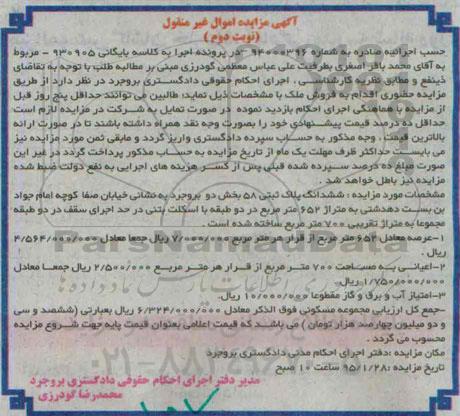 آگهی مزایده اموال غیر منقول
(نوبت دوم)
حسب اجرائیه صادره به شماره ۹۴۰۰۰۳۹۶ در پرونده اجرا به کلاسه بایگانی ۹۳۰۹۰۵ - مربوط
به آقای محمد باقر اصغری بطرفیت علی عباس معظمی گودرزی مبنی بر مطالبه طلب با توجه به تقاضای
ذینفع و مطابق نظریه کارشناسی ، اجرای احکام حقوقی دادگستری بروجرد در نظر دارد از طریق
مزایده حضوری اقدام به فروش ملک با مشخصات ذیل نماید؛ طالبین می توانند حداقل پنج روز قبل
از مزایده با هماهنگی اجرای احکام بازدید نموده در صورت تمایل به شرکت در مزایده لازم است
حداقل ده درصد قیمت پیشنهادی خود را بصورت وجه نقد همراه داشته باشند تا در صورت ارائه
بالاترین قیمت ، وجه مذکور به حساب سپرده دادگستری واریز گردد و مابقی ثمن مورد مزایده نیز
می بایست حداکثر ظرف مهلت یک ماه از تاریخ مزایده به حساب مذکور پرداخت گردد در غیر این
صورت مبلغ ده درصد سپرده شده قبلی پس از کسر هزینه های اجرایی به نفع دولت ضبط شده
مزایده نیز باطل خواهد شد .
مشخصات مورد مزایده : ششدانگ پلاک ثبتی ۵۸ بخش دو بروجرد به نشانی خیابان صفا کوچه امام جواد
بن بست دهدشتی به متراژ ۶۵۲ متر مربع در دو طبقه با اسکلت بتنی در حد اجرای سقف در دو طبقه
مجموعا به متراژ تقریبی ۷۰۰ متر مربع ساخته شده است .
۱-عرصه معادل ۶۵۲ متر مربع از قرار هر متر مربع ۷/۰۰۰/۰۰۰ ریال جمعا معادل ۴/۵۶۴/۰۰۰/۰۰۰ ریال .
۲-اعیانی به مساحت ۷۰۰ متر مربع از قرار هر متر مربع ۲/۵۰۰/۰۰۰ ریال جمعا معادل
۱/۷۵۰/۰۰۰/۰۰۰ ریال.
۳-امتیاز آب و برق و گاز مقطوعا ۱۰/۰۰۰/۰۰۰ ریال.
-جمع کل ارزیابی مجموعه مسکونی فوق الذکر معادل ۶/۳۲۴/۰۰۰/۰۰۰ ریال بعبارتی (ششصد و سی
و دو میلیون چهارصد هزار تومان ) می باشد که قیمت اعلامی بعنوان قیمت پایه جهت شروع مزایده
محسوب می گردد .
مکان مزایده :دفتر اجرای احکام مدنی دادگستری بروجرد
تاریخ مزایده :۹۵/۱/۲۸ ساعت ۱۰ صبح
مدیر دفتر اجرای احکام حقوقی دادگستری بروجرد
محمدرضا گودرزی
ParsNamadData